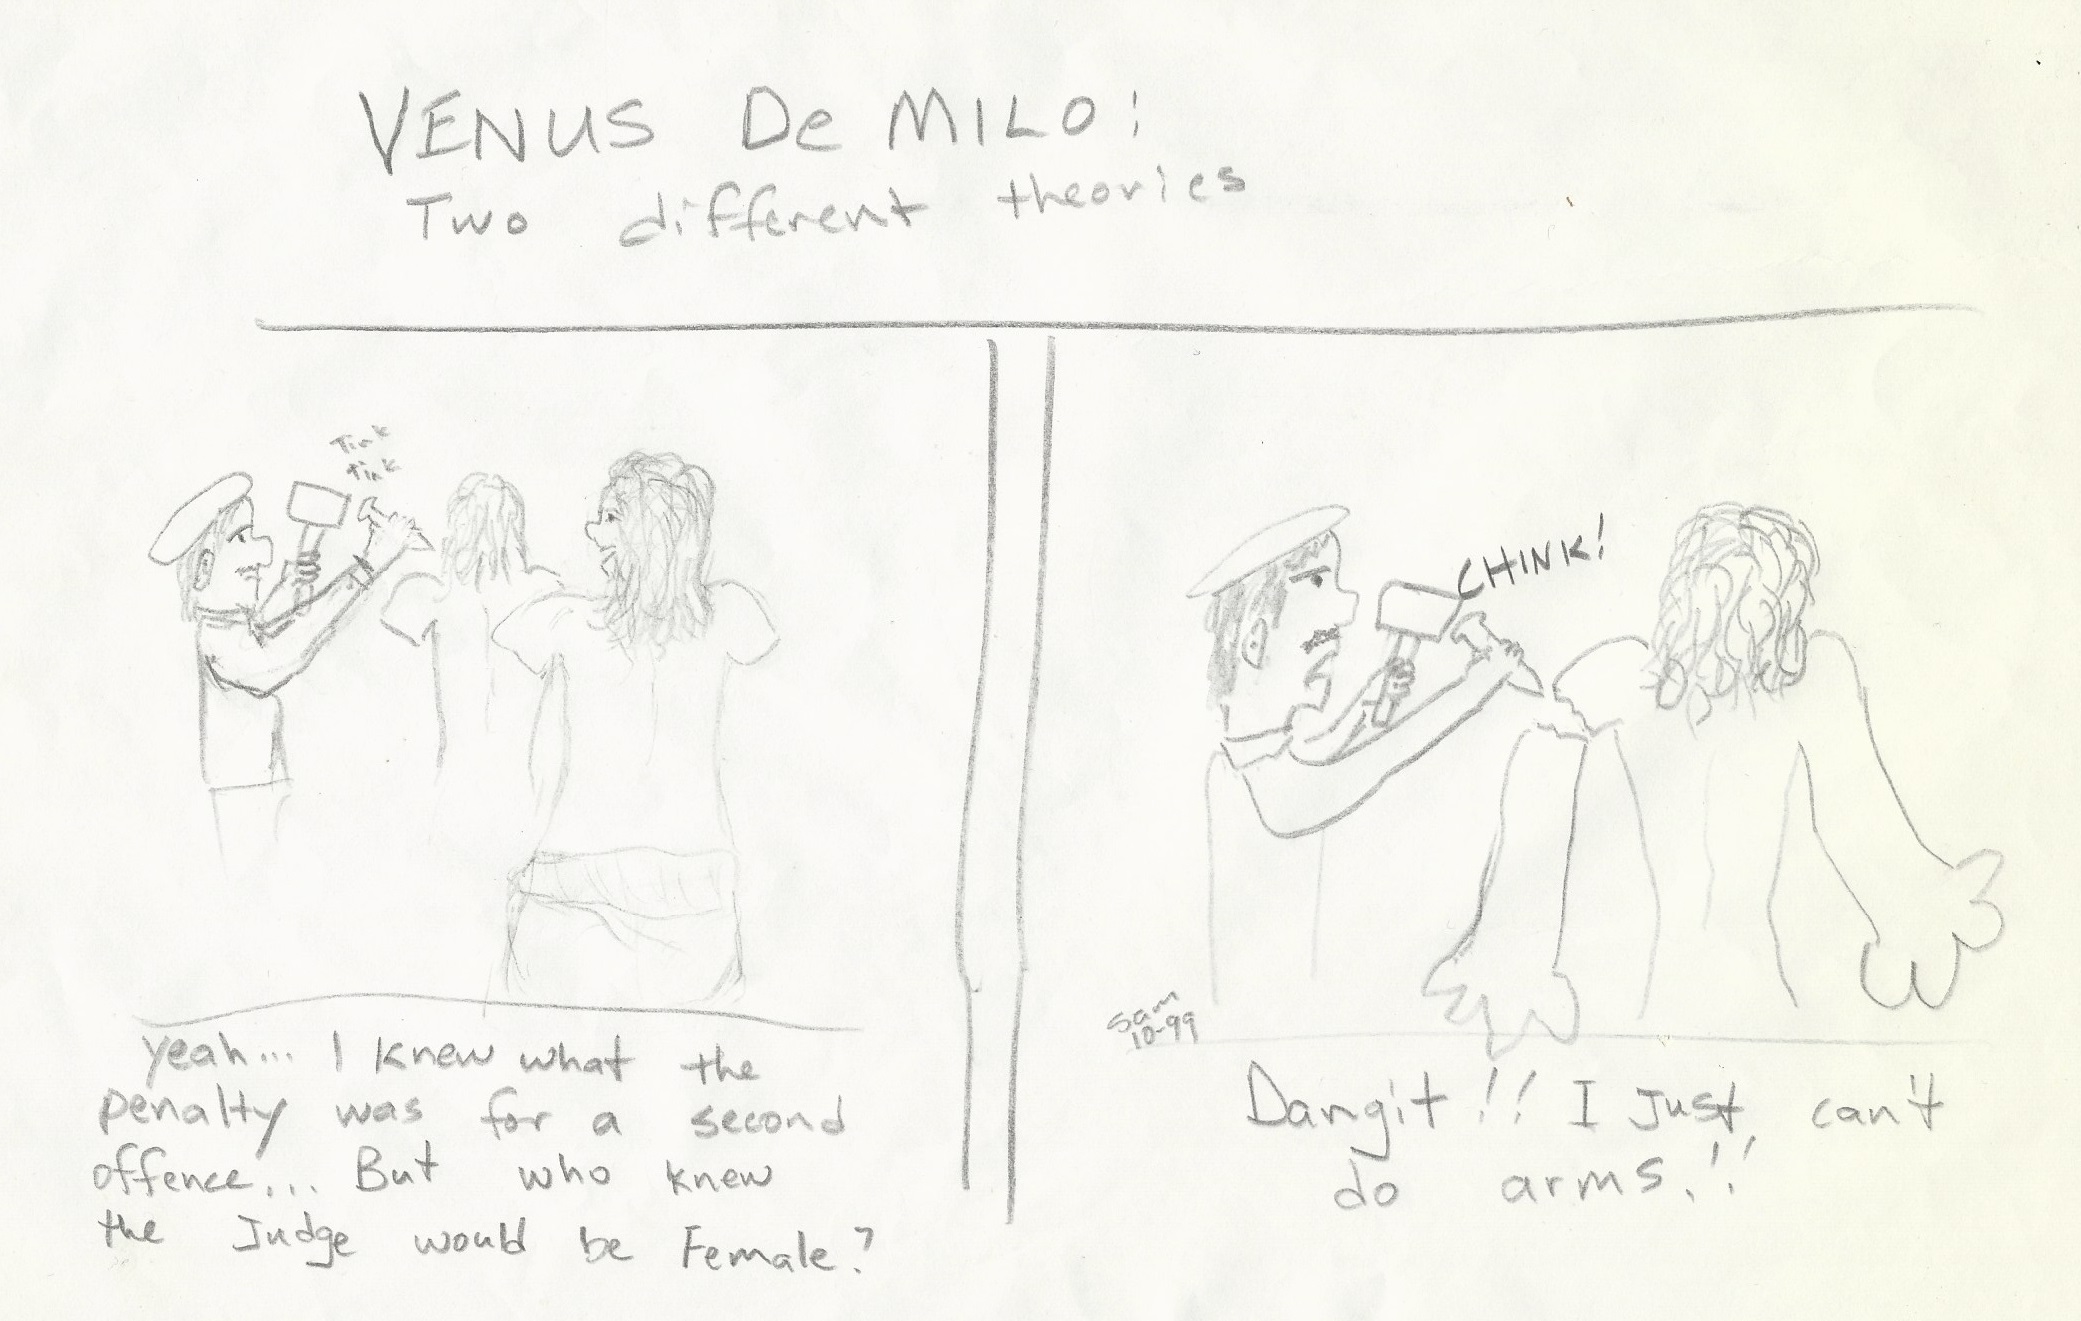 VENUS De MILO:
Two different theories
Tink
tink
CHINK!
yeah... I knew what the
penalty was for a second
offence... But who knew
the Judge would be Female?
Sam
10-99
Dangit!! I Just can't
do arms!!